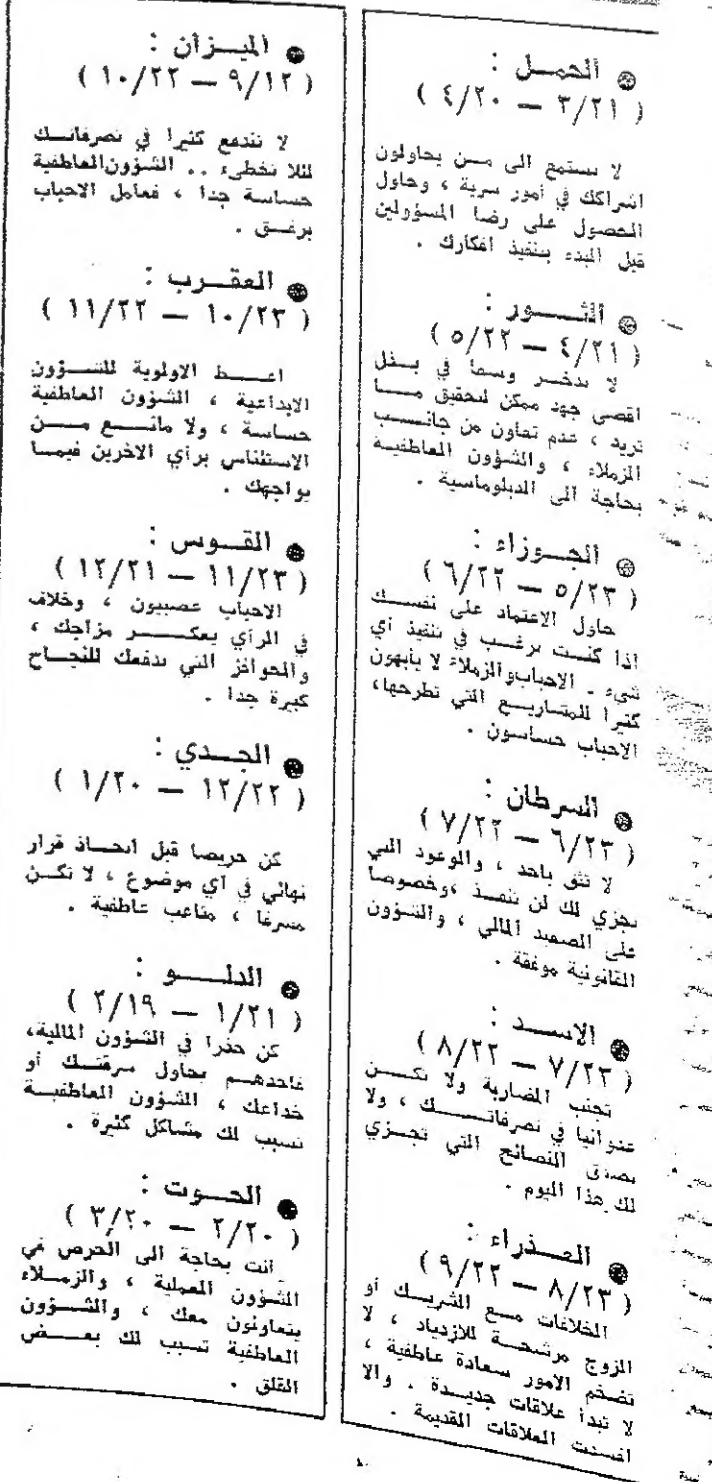 الحمـــل :
( ٣/٢١ — ٤/٢٠ )
لا تستمع الى مـــن يحاولون
اشراكك في أمور سرية ، وحاول
الحصول على رضا المسؤولين
قبل البدء بتنفيذ افكارك .
الثـــور :
( ٤/٢١ — ٥/٢٢ )
لا تدخـــر وسعا في بـــذل
اقصى جهد ممكن لتحقيق مـــا
تريد ، عدم تعاون من جانـــب
الزملاء ، والشؤون العاطفيـــة
بحاجة الى الدبلوماسية .
الجـــوزاء :
( ٥/٢٣ — ٦/٢٢ )
حاول الاعتماد على نفســـك
اذا كنـــت ترغـــب في تنفيذ أي
شيء . الاحباب والزملاء لا يأبهون
كثيرا للمشاريـــع التي تطرحها،
الاحباب حساسون .
السرطان :
( ٦/٢٣ — ٧/٢٢ )
لا تثق باحد ، والوعود التي
تجزي لك لن تنفـــذ ،وخصوصا
على الصعيد المالي ، والشؤون
القانونية موفقة .
الاســـد :
( ٧/٢٣ — ٨/٢٢ )
تجنب المضاربة ولا تكـــن
عدوانيا في تصرفاتـــك ، ولا
تصدق النصائح التي تجـــزي
لك هذا اليوم .
العـــذراء :
( ٨/٢٣ — ٩/٢٢ )
الخلافات مـــع الشريـــك أو
الزوج مرشحـــة للازدياد ، لا
تضخم الامور سعادة عاطفية ،
لا تبدأ علاقات جديـــدة . والا
افسدت العلاقات القديمة .
الميـــزان :
( ٩/١٢ — ١٠/٢٢ )
لا تندفع كثيرا في تصرفاتـــك
لئلا تخطىء .. الشؤون العاطفية
حساسة جدا ، فعامل الاحباب
برفـــق .
العقـــرب :
( ١٠/٢٣ — ١١/٢٢ )
اعـــط الاولوية للشـــؤون
الابداعية ، الشؤون العاطفية
حساسة ، ولا مانـــع مـــن
الاستئناس برأي الاخرين فيمـــا
يواجهك .
القـــوس :
( ١١/٢٣ — ١٢/٢١ )
الاحباب عصبيون ، وخلاف
في الرأي يعكـــر مزاجك ،
والحوافز التي تدفعك للنجـــاح
كبيرة جدا .
الجـــدي :
( ١٢/٢٢ — ١/٢٠ )
كن حريصا قبل اتخـــاذ قرار
نهائي في أي موضوع ، لا تكـــن
مسرفا ، متاعب عاطفية .
الدلـــو :
( ١/٢١ — ٢/١٩ )
كن حذرا في الشؤون المالية،
فاحدهـــم يحاول سرقتـــك أو
خداعك ، الشؤون العاطفيـــة
تسبب لك مشاكل كثيرة .
الحـــوت :
( ٢/٢٠ — ٣/٢٠ )
أنت بحاجة الى الحرص في
الشؤون العملية ، والزمـــلاء
يتعاونون معك ، والشـــؤون
العاطفية تسبب لك بعـــض
القلق .